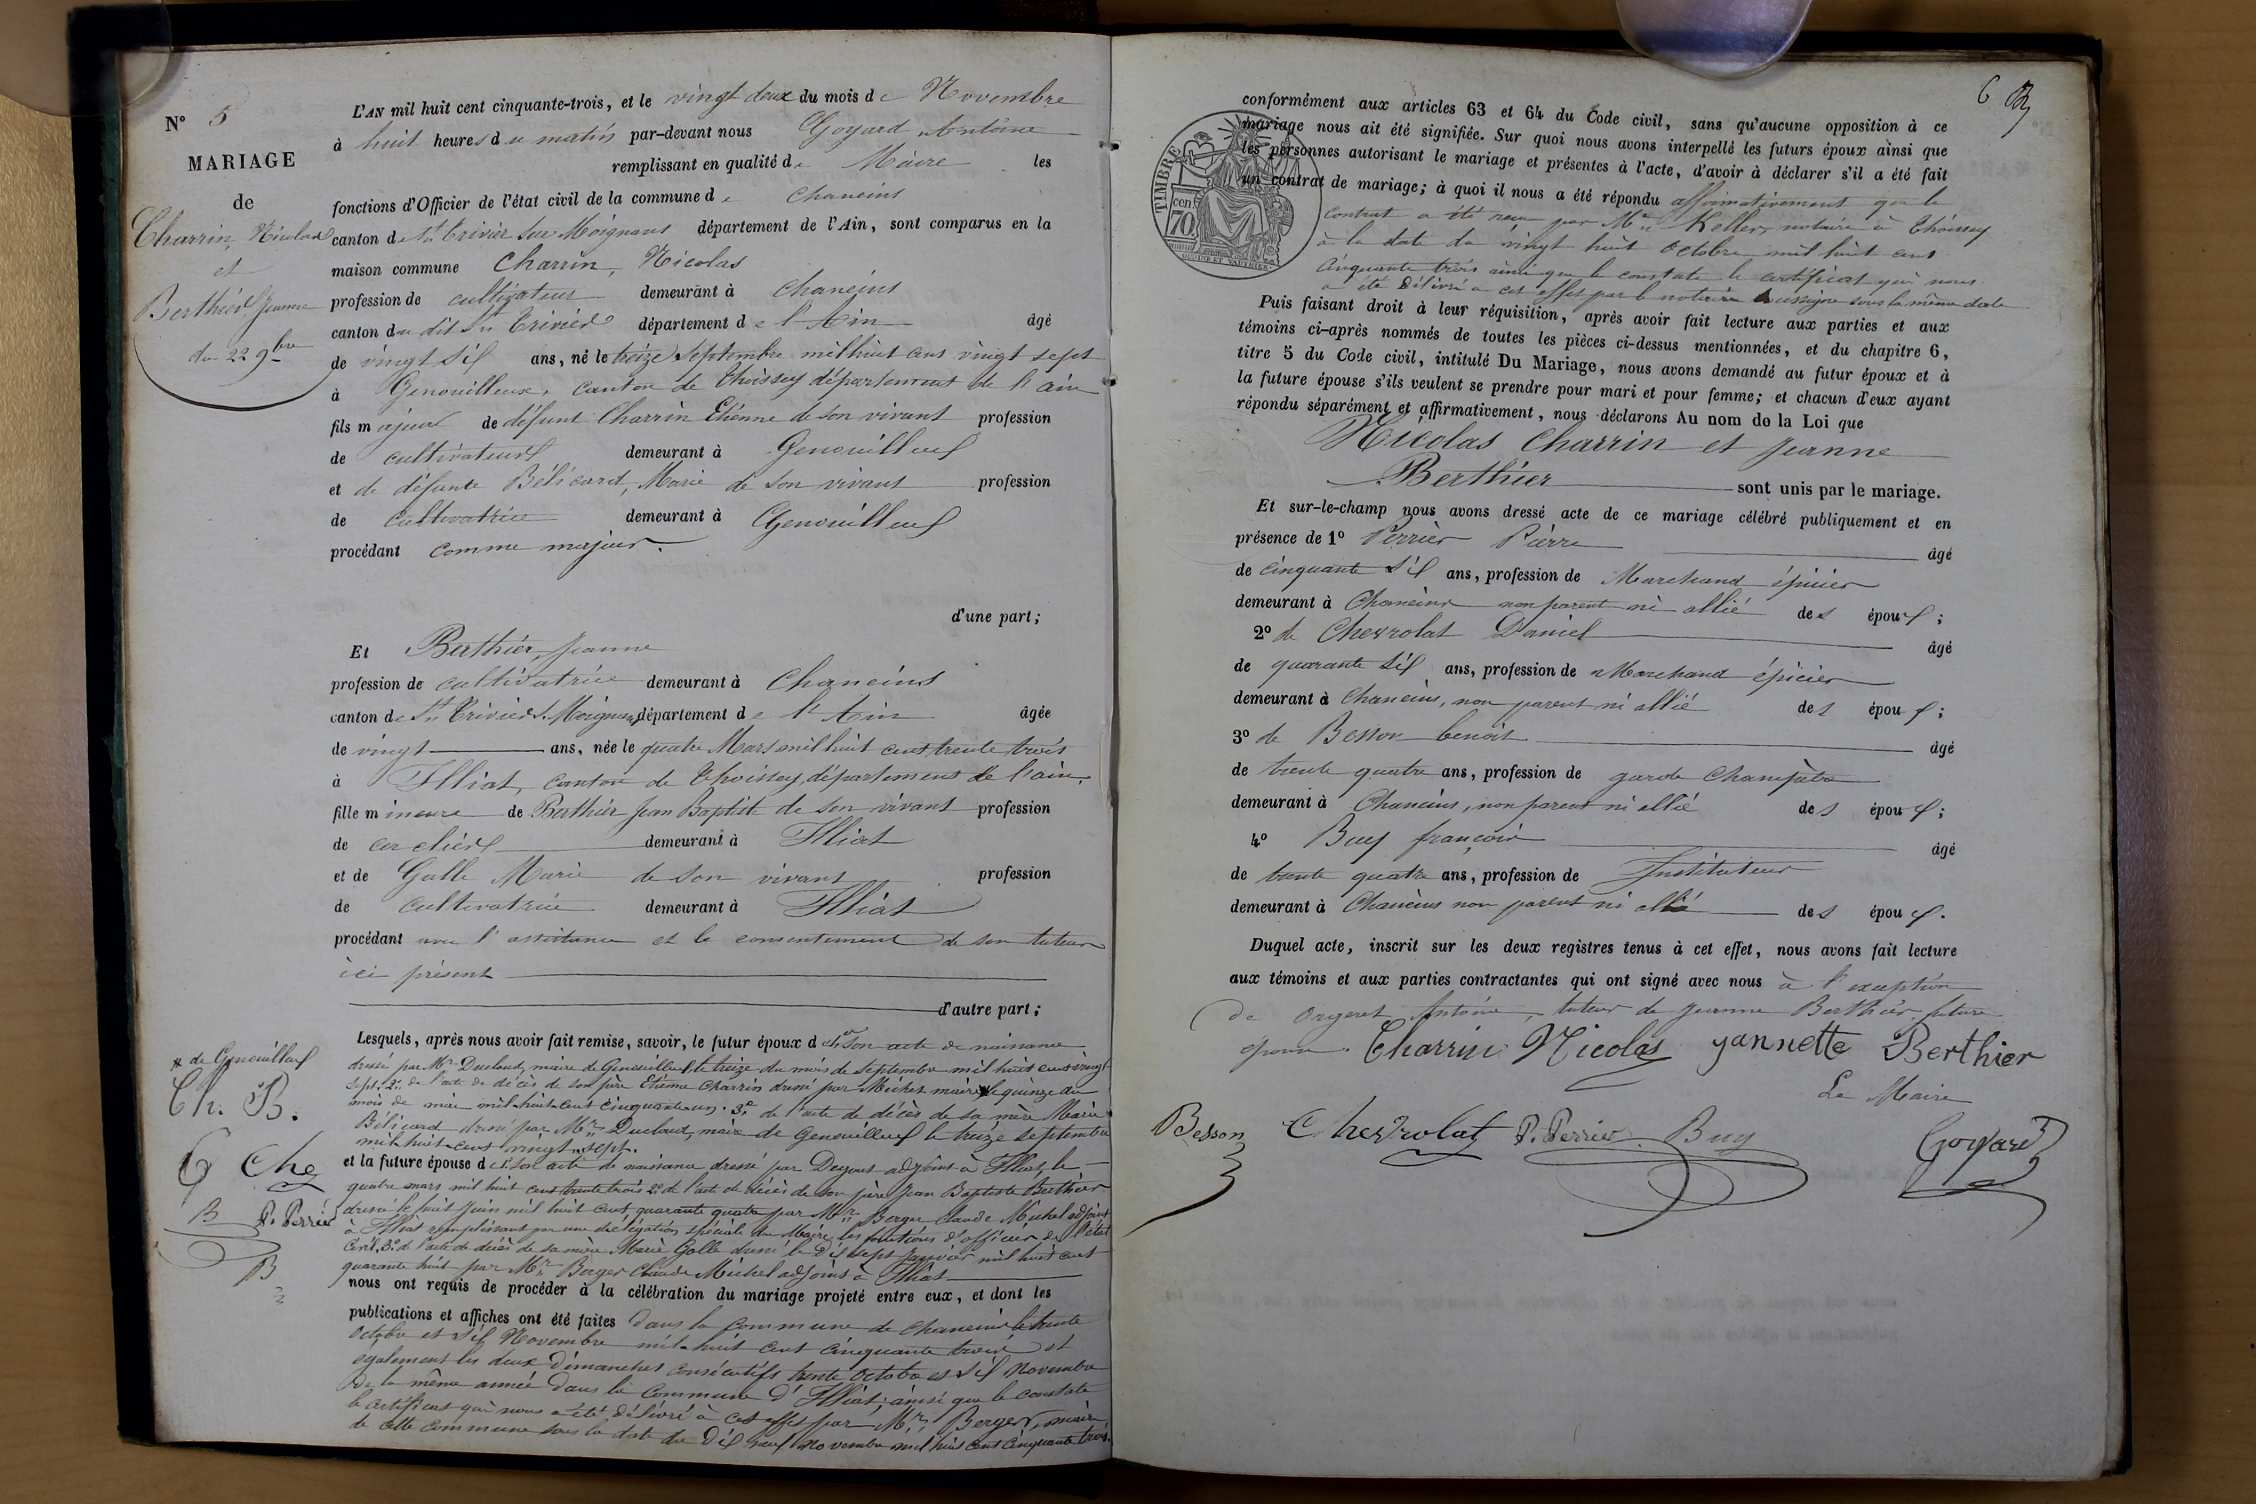 N° 5
MARIAGE
de
Charrin, Nicolas
et
Berthier Jeanne
du 22 9bre
L'AN mil huit cent cinquante-trois, et le vingt deux du mois de Novembre
à huit heures du matin par-devant nous Goyard Antoine
remplissant en qualité de Maire les
fonctions d'Officier de l'état civil de la commune de Chaneins
canton de St Trivier sur Moignans département de l'Ain, sont comparus en la
maison commune Charrin, Nicolas
profession de cultivateur demeurant à Chaneins
canton du dit St Trivier département de l'Ain âgé
de vingt six ans, né le treize Septembre mil huit cent vingt sept
à Genouilleux, canton de Thoissey département de l'ain
fils majeur de défunt Charrin Etienne de son vivant profession
de cultivateur demeurant à Genouilleux
et de défunte Bélicard, Marie de son vivant profession
de cultivatrice demeurant à Genouilleux
procédant comme majeur.
d'une part;
Et Berthier, Jeanne
profession de cultivatrice demeurant à Chaneins
canton de St Trivier s. Moignans département de l'Ain âgée
de vingt ans, née le quatre Mars mil huit cent trente trois
à Illiat, canton de Thoissey, département de l'ain,
fille mineure de Berthier Jean Baptiste de son vivant profession
de demeurant à Illiat
et de Galle Marie de son vivant profession
de cultivatrice demeurant à Illiat
procédant avec l'assistance et le consentement de son tuteur
ici présent
d'autre part;
Lesquels, après nous avoir fait remise, savoir, le futur époux de 1° son acte de naissance
dressé par Mr Duclaud, maire de Genouilleux, le treize du mois de septembre mil huit cent vingt
sept. 2° de l'acte de décès de son père Etienne Charrin dressé par Michet maire * le quinze du
mois de mai mil huit cent cinquante un. 3° de l'acte de décès de sa mère Marie
Bélicard dressé par Mr Duclaud, maire de Genouilleux le treize septembre
mil huit cent vingt sept.
* de Genouilleux
Ch. B.
G Che
B P. Perrier
B
et la future épouse de 1° son acte de naissance dressé par adjoint à Illiat, le
quatre mars mil huit cent trente trois 2° de l'acte de décès de son père Jean Baptiste Berthier
dressé le huit Juin mil huit cent quarante quatre par Mr Berger Claude Michel adjoint
à Illiat remplissant par une délégation spéciale du Maire les fonctions d'officier de l'état
Civil. 3° de l'acte de décès de sa mère Marie Galle dressé le dix sept Janvier mil huit cent
quarante huit par Mr Berger Claude Michel adjoint à Illiat
nous ont requis de procéder à la célébration du mariage projeté entre eux, et dont les
publications et affiches ont été faites dans la commune de Chaneins le trente
Octobre et six Novembre mil huit cent cinquante trois et
également les deux dimanches consécutifs trente octobre et six Novembre
de la même année dans la Commune d'Illiat, ainsi que le constate
le certificat qui nous a été délivré à cet effet par Mr Berger, maire
de cette commune sous la date du dix neuf novembre mil huit cent cinquante trois.
6
TIMBRE
cen 70
conformément aux articles 63 et 64 du Code civil, sans qu'aucune opposition à ce
mariage nous ait été signifiée. Sur quoi nous avons interpellé les futurs époux ainsi que
les personnes autorisant le mariage et présentes à l'acte, d'avoir à déclarer s'il a été fait
un contrat de mariage; à quoi il nous a été répondu affirmativement que le
contrat a été reçu par Mr Keller, notaire à Thoissey
à la date du vingt huit octobre mil huit cent
cinquante trois ainsi que le constate le certificat qui nous
a été délivré à cet effet par le notaire sous la même date
Puis faisant droit à leur réquisition, après avoir fait lecture aux parties et aux
témoins ci-après nommés de toutes les pièces ci-dessus mentionnées, et du chapitre 6,
titre 5 du Code civil, intitulé Du Mariage, nous avons demandé au futur époux et à
la future épouse s'ils veulent se prendre pour mari et pour femme; et chacun d'eux ayant
répondu séparément et affirmativement, nous déclarons Au nom de la Loi que
Nicolas Charrin et Jeanne
Berthier sont unis par le mariage.
Et sur-le-champ nous avons dressé acte de ce mariage célébré publiquement et en
présence de 1° Perrier Pierre âgé
de cinquante six ans, profession de Marchand épicier
demeurant à Chaneins non parent ni allié des époux;
2° de Chevrolat Daniel âgé
de quarante six ans, profession de Marchand épicier
demeurant à Chaneins, non parent ni allié des époux;
3° de Besson benoit âgé
de trente quatre ans, profession de garde Champêtre
demeurant à Chaneins, non parent ni allié des époux;
4° Buy françois âgé
de trente quatre ans, profession de Instituteur
demeurant à Chaneins non parent ni allié des époux.
Duquel acte, inscrit sur les deux registres tenus à cet effet, nous avons fait lecture
aux témoins et aux parties contractantes qui ont signé avec nous à l'exception
de Orgeret Antoine, tuteur de Jeanne Berthier future
épouse. Charrin Nicolas Jannette Berthier
Le Maire
Besson Chevrolat P. Perrier Buy Goyard